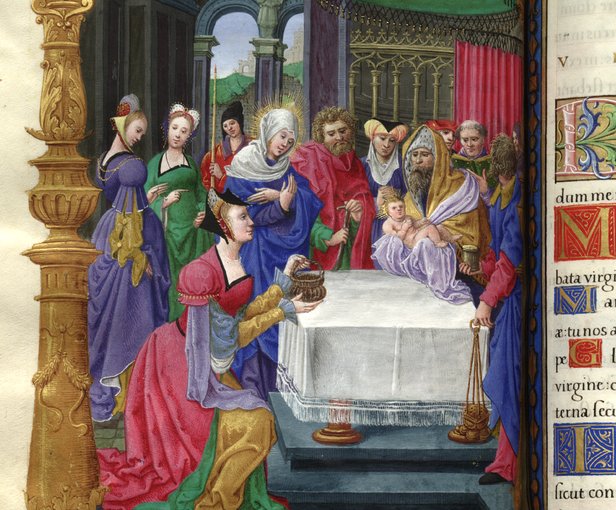 V
dum me
M
bata virgi
M
æ:tu nos a
pe G
virgine:c
terna secu
I
sicut con